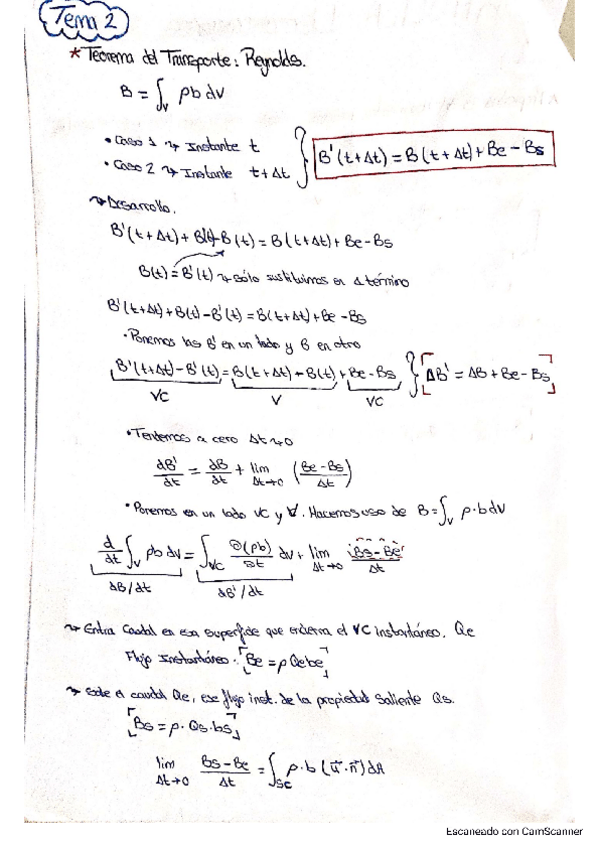 Tema 2
* Teorema del Transporte: Reynolds.
B = ∫_V ρb dV
• Caso 1 ⤳ Instante t
• Caso 2 ⤳ Instante t+Δt } B'(t+Δt) = B(t+Δt) + Be - Bs
⤳ Desarrollo.
B'(t+Δt) + B(t) - B(t) = B(t+Δt) + Be - Bs
B(t) = B'(t) ⤳ sólo sustituimos en 1 término
B'(t+Δt) + B(t) - B'(t) = B(t+Δt) + Be - Bs
• Ponemos las B' en un lado y B en otro
B'(t+Δt) - B'(t) = B(t+Δt) - B(t) + Be - Bs } [ΔB' = ΔB + Be - Bs]
VC V VC
• Tendemos a cero Δt→0
dB'/dt = dB/dt + lim Δt→0 (Be - Bs / Δt)
• Ponemos en un lado VC y V. Hacemos uso de B = ∫_V ρ·b dV
d/dt ∫_V ρb dV = ∫_VC ∂(ρb)/∂t dV + lim Δt→0 Bs - Be / Δt
dB/dt dB'/dt
⤳ Entra Caudal en esa superficie que encierra el VC instantáneo. Qe
Flujo Instantáneo: [Be = ρ Qe be]
⤳ Sale el caudal Qe, ese flujo inst. de la propiedad Saliente Qs.
[Bs = ρ · Qs · bs]
lim Δt→0 Bs - Be / Δt = ∫_SC ρ · b (u⃗ · n⃗) dA
Escaneado con CamScanner